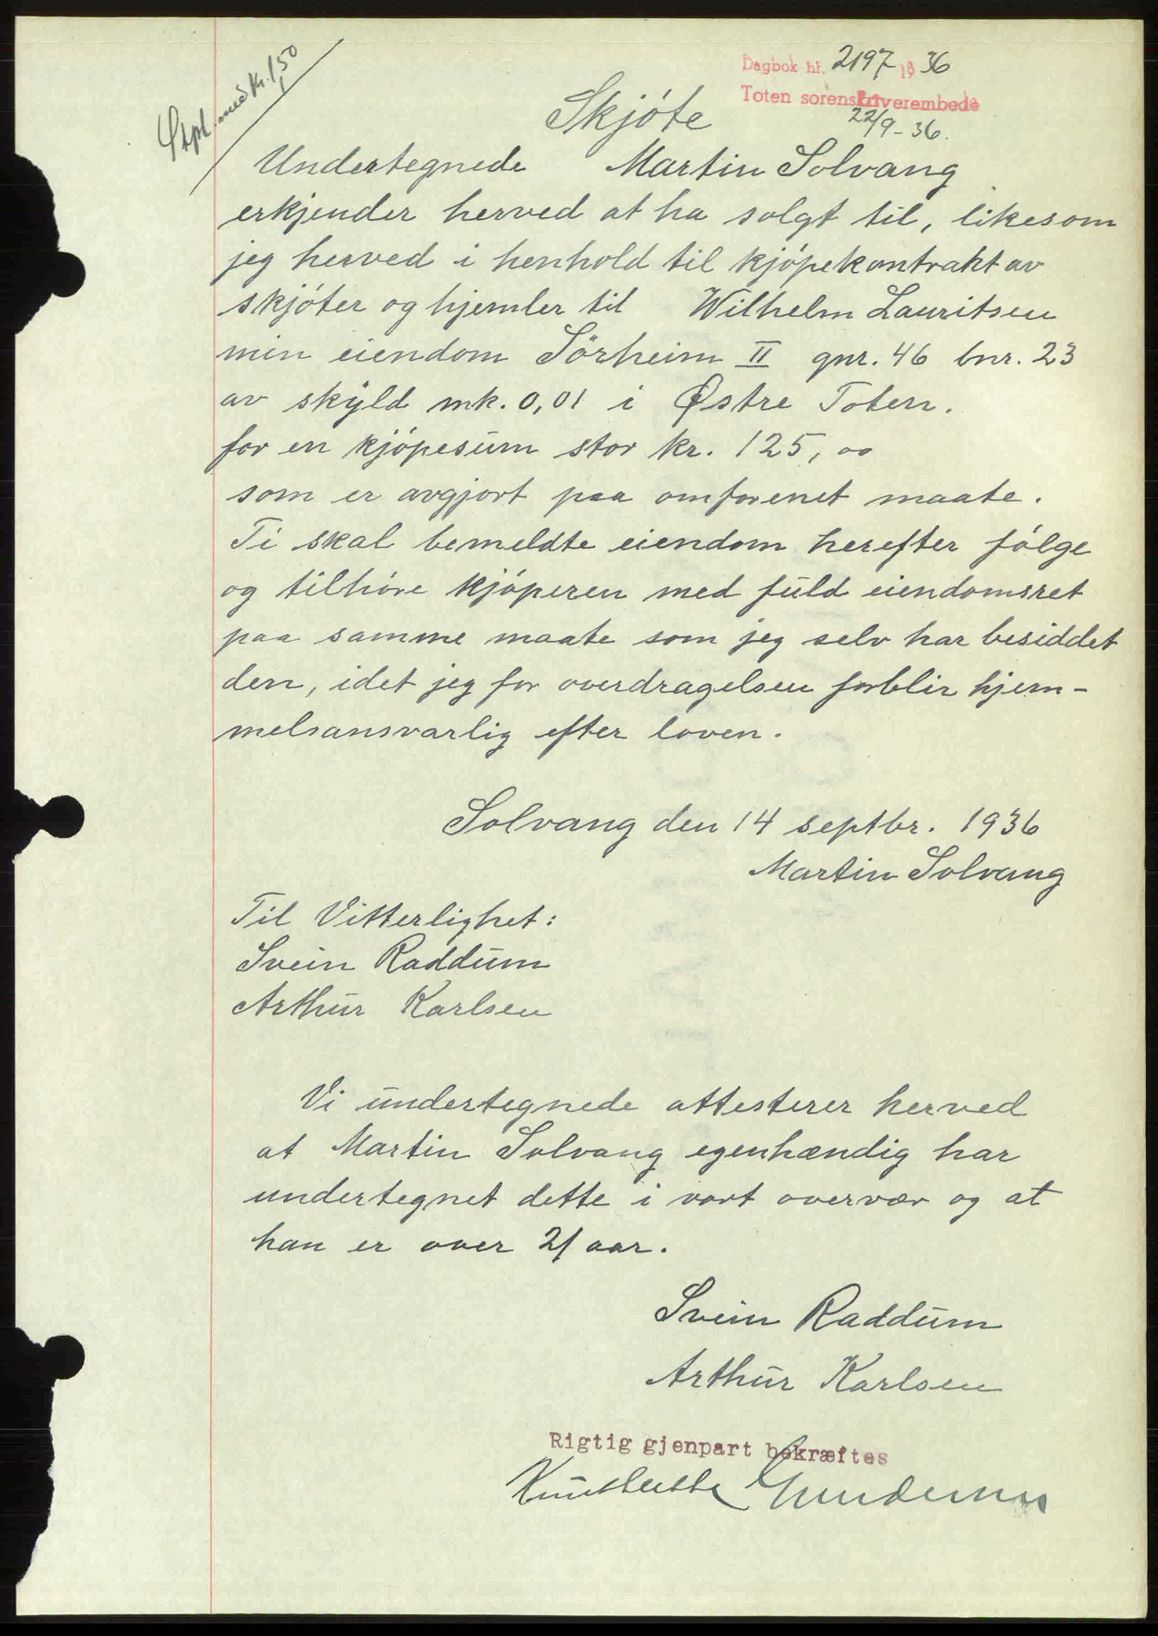 Stpl. med kr. 1,50
Dagbok nr. 2197 1936
Toten sorenskriverembede
22/9-36.
Skjøte
Undertegnede Martin Solvang
erkjender herved at ha solgt til, likesom
jeg herved i henhold til kjøpekontrakt av
skjøter og hjemler til Wilhelm Lauritsen
min eiendom Sörheim II gnr. 46 bnr. 23
av skyld mk. 0,01 i Østre Toten.
for en kjøpesum stor kr. 125,00
som er avgjort paa omforenet maate.
Ti skal bemeldte eiendom herefter følge
og tilhøre kjøperen med fuld eiendomsret
paa samme maate som jeg selv har besiddet
den, idet jeg for overdragelsen forblir hjem-
melsansvarlig efter loven.
Solvang den 14 septbr. 1936
Martin Solvang
Til Vitterlighet:
Svein Raddum
Arthur Karlsen
Vi undertegnede attesterer herved
at Martin Solvang egenhændig har
undertegnet dette i vort overvær og at
han er over 21 aar.
Svein Raddum
Arthur Karlsen
Rigtig gjenpart bekræftes